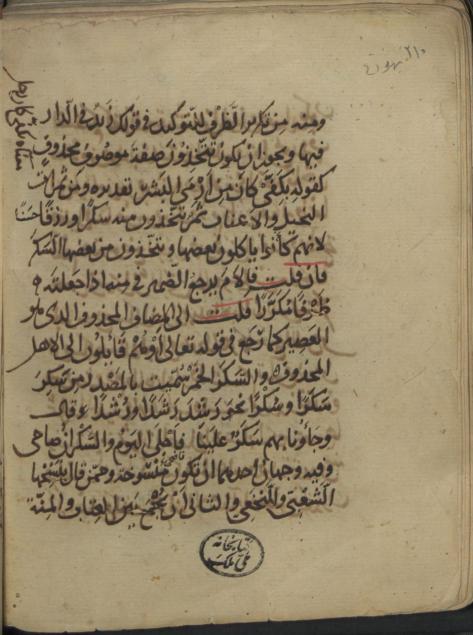 ومنه من تكرير الظرف للتوكيد في قولك زيد في الدار
فيها ويجوز ان يكون تتخذون صفة موصوف محذوف
كقوله بكفي كان من ارمى البشر تقديره ومن ثمرات
النخيل والاعناب ثمر تتخذون منه سكرا ورزقا حسنا
لانهم كانوا ياكلون بعضها ويتخذون من بعضها السكر
فان قلت فالام يرجع الضمير في منه اذا جعلته
ظرفا مكررا قلت الى المضاف المحذوف الذي هو
العصير كما رجع في قوله تعالى اوهم قايلون الى الاهل
المحذوف والسكر الخمر سميت بالمصدر من سكر
سكرا وسكرا نحو رشد رشدا ورشدا قال
وجاؤنا بهم سكر علينا فاجلى اليوم والسكران صاحي
وفيه وجهان احدهما ان تكون منسوخة وممن قال بنسخها
الشعبي والنخعي والثاني ان يجمع بين العتاب والمنة
كتابخانه
ملى ملك
٢١٠